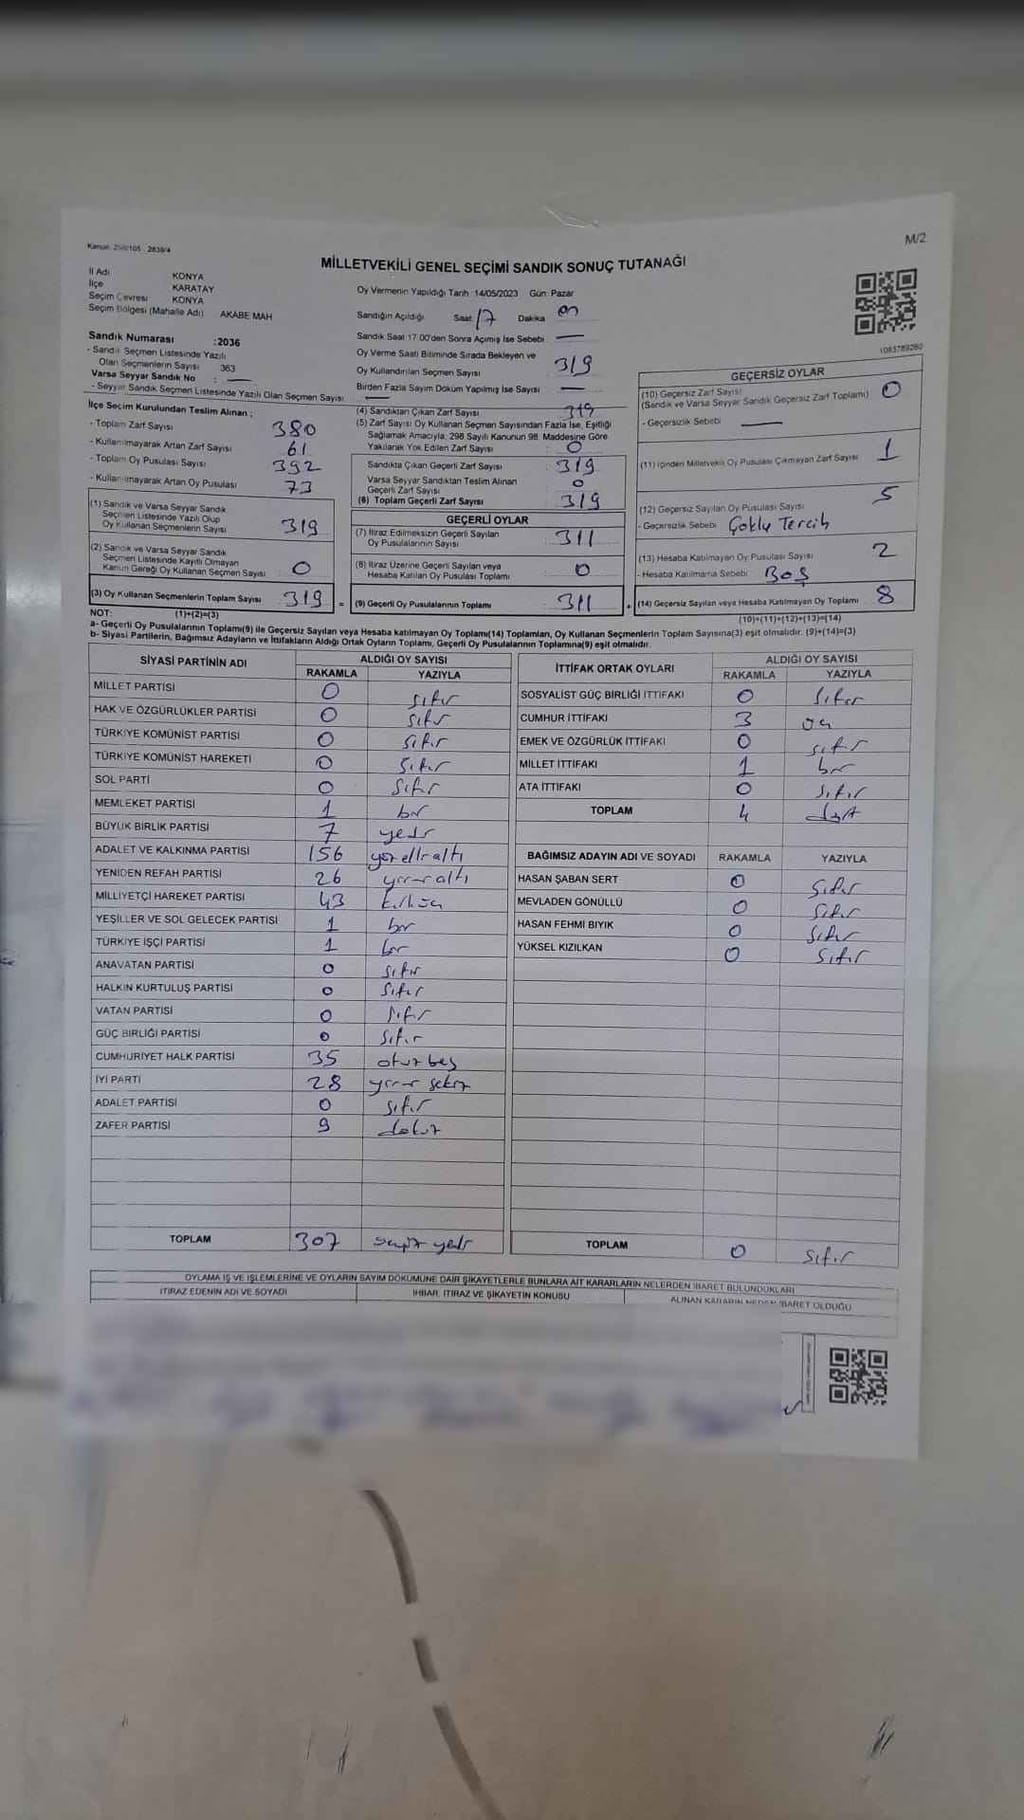 Kanun: 298/105 - 2839/4
M/2
MİLLETVEKİLİ GENEL SEÇİMİ SANDIK SONUÇ TUTANAĞI
İl Adı KONYA
İlçe KARATAY
Seçim Çevresi KONYA
Seçim Bölgesi (Mahalle Adı) AKABE MAH
Sandık Numarası :2036
- Sandık Seçmen Listesinde Yazılı
Olan Seçmenlerin Sayısı 363
Varsa Seyyar Sandık No : —
- Seyyar Sandık Seçmen Listesinde Yazılı Olan Seçmen Sayısı: —
İlçe Seçim Kurulundan Teslim Alınan ;
- Toplam Zarf Sayısı 380
- Kullanılmayarak Artan Zarf Sayısı 61
- Toplam Oy Pusulası Sayısı 392
- Kullanılmayarak Artan Oy Pusulası 73
(1) Sandık ve Varsa Seyyar Sandık
Seçmen Listesinde Yazılı Olup
Oy Kullanan Seçmenlerin Sayısı 319
(2) Sandık ve Varsa Seyyar Sandık
Seçmen Listesinde Kayıtlı Olmayan
Kanun Gereği Oy Kullanan Seçmen Sayısı 0
(3) Oy Kullanan Seçmenlerin Toplam Sayısı 319 =
NOT: (1)+(2)=(3)
Oy Vermenin Yapıldığı Tarih :14/05/2023 Gün: Pazar
Sandığın Açıldığı Saat 17 Dakika
Sandık Saat 17.00'den Sonra Açılmış İse Sebebi —
Oy Verme Saati Bitiminde Sırada Bekleyen ve
Oy Kullandırılan Seçmen Sayısı 319
Birden Fazla Sayım Döküm Yapılmış İse Sayısı —
(4) Sandıktan Çıkan Zarf Sayısı 319
(5) Zarf Sayısı Oy Kullanan Seçmen Sayısından Fazla İse, Eşitliği
Sağlamak Amacıyla, 298 Sayılı Kanunun 98. Maddesine Göre
Yakılarak Yok Edilen Zarf Sayısı 0
Sandıkta Çıkan Geçerli Zarf Sayısı 319
Varsa Seyyar Sandıktan Teslim Alınan
Geçerli Zarf Sayısı 0
(6) Toplam Geçerli Zarf Sayısı 319
GEÇERLİ OYLAR
(7) İtiraz Edilmeksizin Geçerli Sayılan
Oy Pusulalarının Sayısı 311
(8) İtiraz Üzerine Geçerli Sayılan veya
Hesaba Katılan Oy Pusulası Toplamı 0
(9) Geçerli Oy Pusulalarının Toplamı 311
1083789260
GEÇERSİZ OYLAR
(10) Geçersiz Zarf Sayısı
(Sandık ve Varsa Seyyar Sandık Geçersiz Zarf Toplamı) 0
- Geçersizlik Sebebi —
(11) İçinden Milletvekili Oy Pusulası Çıkmayan Zarf Sayısı 1
(12) Geçersiz Sayılan Oy Pusulası Sayısı 5
- Geçersizlik Sebebi Çoklu Tercih
(13) Hesaba Katılmayan Oy Pusulası Sayısı 2
- Hesaba Katılmama Sebebi BOŞ
(14) Geçersiz Sayılan veya Hesaba Katılmayan Oy Toplamı 8
(10)+(11)+(12)+(13)=(14)
a- Geçerli Oy Pusulalarının Toplamı(9) ile Geçersiz Sayılan veya Hesaba katılmayan Oy Toplamı(14) Toplamları, Oy Kullanan Seçmenlerin Toplam Sayısına(3) eşit olmalıdır. (9)+(14)=(3)
b- Siyasi Partilerin, Bağımsız Adayların ve İttifakların Aldığı Ortak Oyların Toplamı, Geçerli Oy Pusulalarının Toplamına(9) eşit olmalıdır.
SİYASİ PARTİNİN ADI ALDIĞI OY SAYISI
RAKAMLA YAZIYLA
MİLLET PARTİSİ 0 sıfır
HAK VE ÖZGÜRLÜKLER PARTİSİ 0 sıfır
TÜRKİYE KOMÜNİST PARTİSİ 0 sıfır
TÜRKİYE KOMÜNİST HAREKETİ 0 sıfır
SOL PARTİ 0 sıfır
MEMLEKET PARTİSİ 1 bir
BÜYÜK BİRLİK PARTİSİ 7 yedi
ADALET VE KALKINMA PARTİSİ 156 yüz elli altı
YENİDEN REFAH PARTİSİ 26 yirmi altı
MİLLİYETÇİ HAREKET PARTİSİ 43 kırküç
YEŞİLLER VE SOL GELECEK PARTİSİ 1 bir
TÜRKİYE İŞÇİ PARTİSİ 1 bir
ANAVATAN PARTİSİ 0 sıfır
HALKIN KURTULUŞ PARTİSİ 0 sıfır
VATAN PARTİSİ 0 sıfır
GÜÇ BİRLİĞİ PARTİSİ 0 sıfır
CUMHURİYET HALK PARTİSİ 35 otuz beş
İYİ PARTİ 28 yirmi sekiz
ADALET PARTİSİ 0 sıfır
ZAFER PARTİSİ 9 dokuz
TOPLAM 307 yedi
İTTİFAK ORTAK OYLARI ALDIĞI OY SAYISI
RAKAMLA YAZIYLA
SOSYALİST GÜÇ BİRLİĞİ İTTİFAKI 0 sıfır
CUMHUR İTTİFAKI 3 üç
EMEK VE ÖZGÜRLÜK İTTİFAKI 0 sıfır
MİLLET İTTİFAKI 1 bir
ATA İTTİFAKI 0 sıfır
TOPLAM 4 dört
BAĞIMSIZ ADAYIN ADI VE SOYADI RAKAMLA YAZIYLA
HASAN ŞABAN SERT 0 sıfır
MEVLADEN GÖNÜLLÜ 0 sıfır
HASAN FEHMİ BIYIK 0 sıfır
YÜKSEL KIZILKAN 0 sıfır
TOPLAM 0 sıfır
OYLAMA İŞ VE İŞLEMLERİNE VE OYLARIN SAYIM DÖKÜMÜNE DAİR ŞİKAYETLERLE BUNLARA AİT KARARLARIN NELERDEN İBARET BULUNDUKLARI
İTİRAZ EDENİN ADI VE SOYADI İHBAR, İTİRAZ VE ŞİKAYETİN KONUSU ALINAN KARARIN NEDEN İBARET OLDUĞU